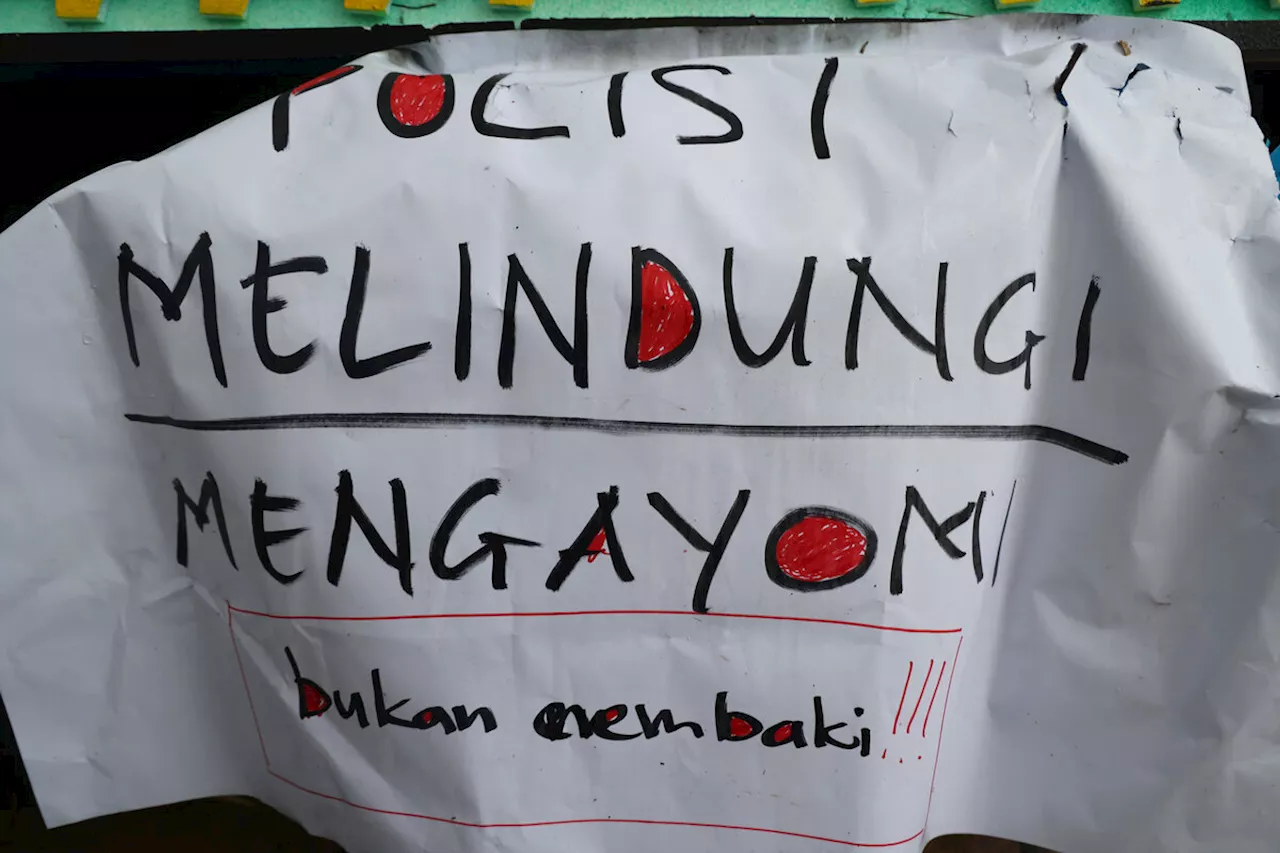 POLISI
MELINDUNGI
MENGAYOMI
bukan membaki !!!